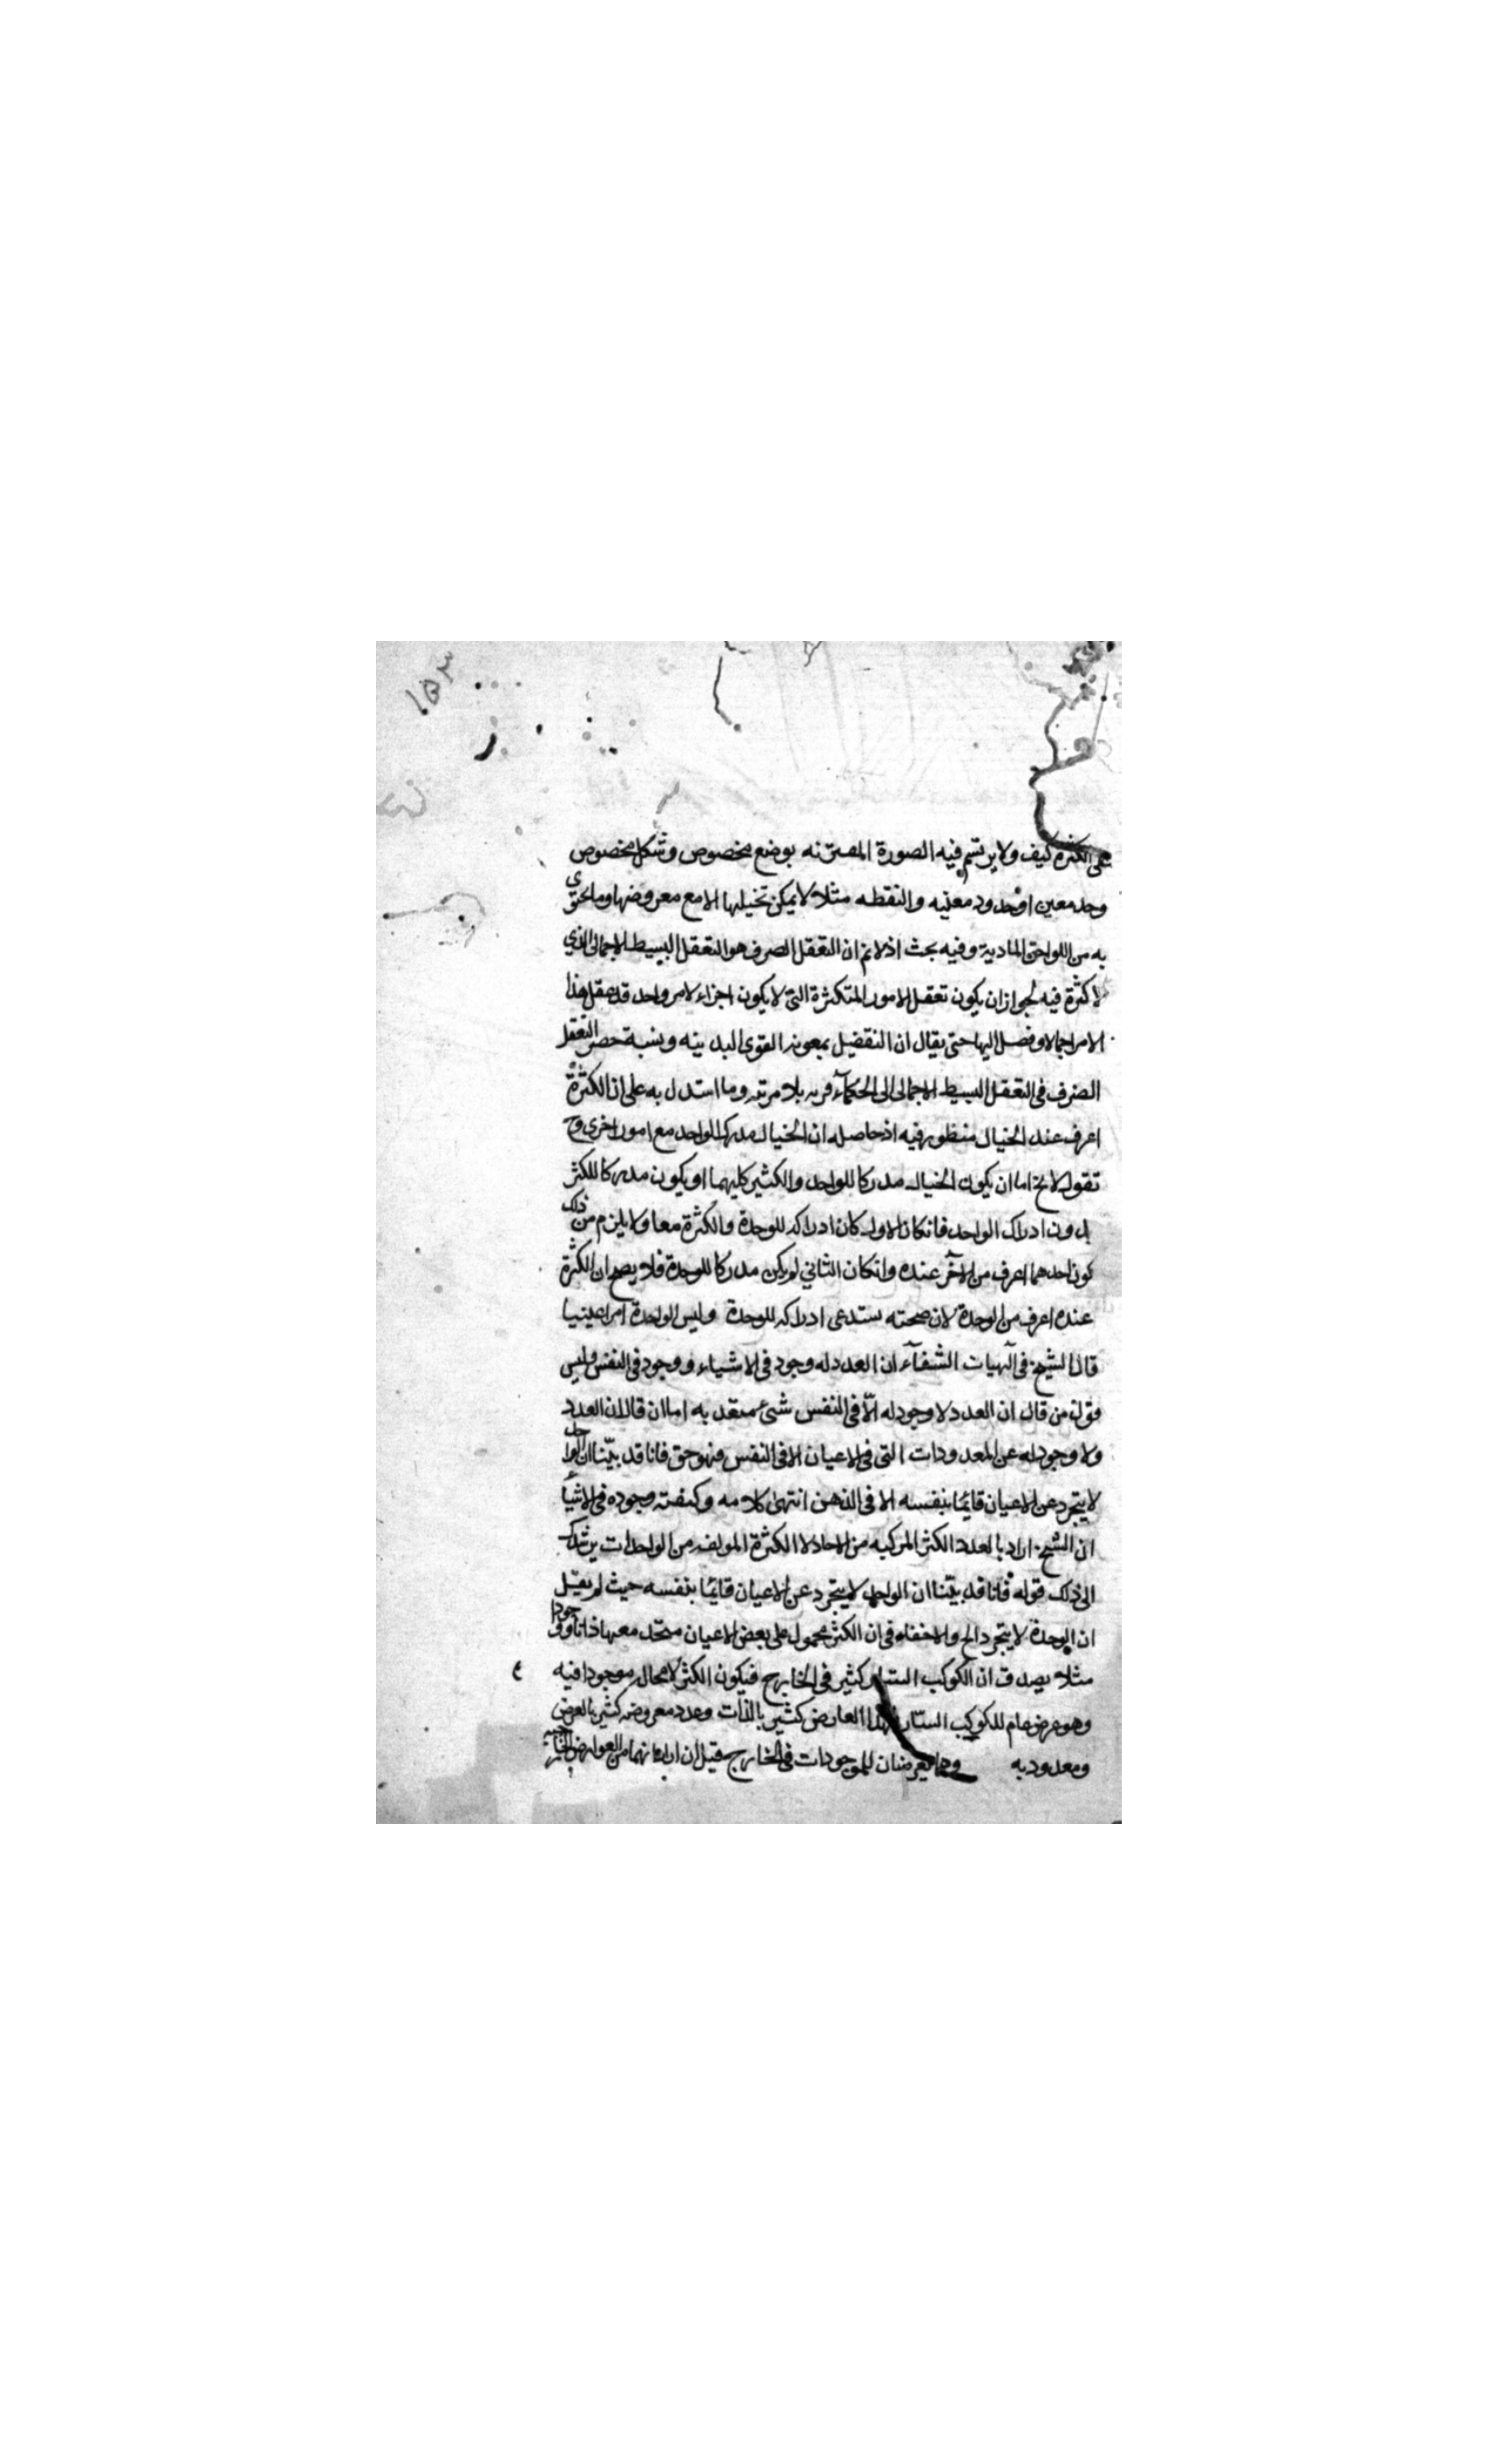 ١٥٣
على الكثرة كيف ولا يرتسم فيه الصورة المقترنه بوضع مخصوص وشكل مخصوص
وحد معين او حدود معنيه والنقطه مثلا لا يمكن تخيلها الا مع معروضها وما لحق
به من اللواحق المادية وفيه بحث اذ لانم ان التعقل الصرف هو التعقل البسيط الاجمالى الذي
لا كثرة فيه لجواز ان يكون تعقل الامور المتكثرة التى لا يكون اجزاء لامر واحد قد عقل هذا
الامر اجمالا وفصل اليها حتى يقال ان التفضيل بمعونه القوى البدينه ونسبة حصر التعقل
الصرف فى التعقل البسيط الاجمالى الى الحكمآء فريه بلا مريه وما استدل به على ان الكثرة
اعرف عند الخيال منظور فيه اذ حاصله ان الخيال مدرك للواحد مع امور اخرى وح
تقول لا يخ اما ان يكون الخيال مدركا للواحد والكثير كليهما او يكون مدركا للكثر
بدون ادراك الواحد فانكان الاول كان ادراكه للوحدة والكثرة معا ولا يلزم من ذلك
كون احدهما اعرف من الآخر عنده وانكان الثاني لم يكن مدركا للوحدة فلا يصح ان الكثرة
عنده اعرف من الوحدة لان صحته ستدعى ادراكه للوحدة وليس الوحدة امرا عينيا
قال الشيخ فى آلهيات الشفآء ان العدد له وجود فى الاشياء ووجود فى النفس وليس
قول من قال ان العدد لا وجود له الّا فى النفس شئ معتد به اما ان قال ان العدد
ولا وجود له عن المعدودات التى فى الاعيان الا فى النفس فهو حق فانا قد بيّنا ان الواحد
لا يتجرد عن الاعيان قائما بنفسه الا فى الذهن انتهى كلامه وكيفيته وجوده فى الاشيآ
ان الشيخ اراد بالعدد الكثر المركبه من الاحاد لا الكثرة المولفه من الواحدات يرشدك
الى ذلك قوله فانا قد بيّنا ان الواحد لا يتجرد عن الاعيان قائما بنفسه حيث لم يقيل
ان الوحدة لا يتجرد الخ ولا خفاء فى ان الكثر محمول على بعض الاعيان متحد معها ذاتا ووجودا
مثلا يصدق ان الكوكب السيار كثير فى الخارج فيكون الكثر لا محال موجودا فيه
وهو عرض عام للكوكب السيّار فهذا العارض كثير بالذات وعدد معروضه كثير بالعرض
ومعدود به وهما يعرضان للموجودات فى الخارج قيل ان اراد انهما من العوارض الخارجيه